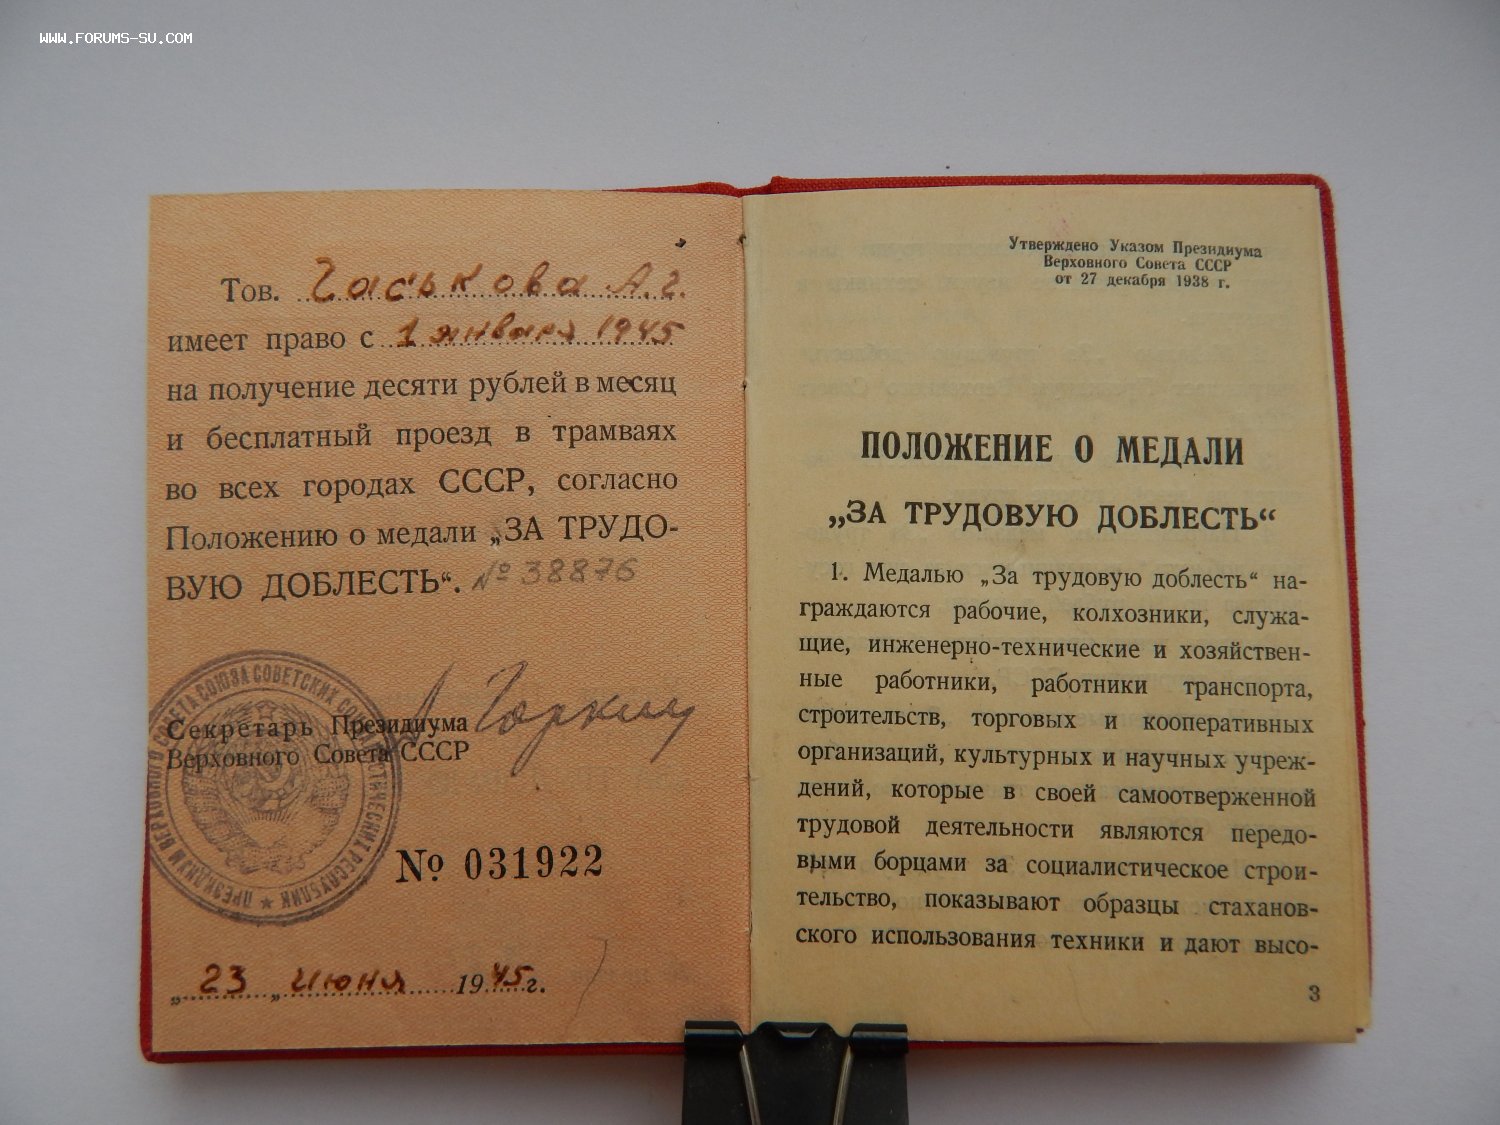 WWW.FORUMS-SU.COM
Тов. Гаськова А.Г.
имеет право с 1 января 1945
на получение десяти рублей в месяц
и бесплатный проезд в трамваях
во всех городах СССР, согласно
Положению о медали „ЗА ТРУДО-
ВУЮ ДОБЛЕСТЬ“. № 38876
Секретарь Президиума
Верховного Совета СССР
А Горкин
ПРЕЗИДИУМ ВЕРХОВНОГО СОВЕТА СОЮЗА СОВЕТСКИХ СОЦИАЛИСТИЧЕСКИХ РЕСПУБЛИК
№ 031922
„23„ июня 1945 г.
Утверждено Указом Президиума
Верховного Совета СССР
от 27 декабря 1938 г.
ПОЛОЖЕНИЕ О МЕДАЛИ
„ЗА ТРУДОВУЮ ДОБЛЕСТЬ“
1. Медалью „За трудовую доблесть“ на-
граждаются рабочие, колхозники, служа-
щие, инженерно-технические и хозяйствен-
ные работники, работники транспорта,
строительств, торговых и кооперативных
организаций, культурных и научных учреж-
дений, которые в своей самоотверженной
трудовой деятельности являются передо-
выми борцами за социалистическое строи-
тельство, показывают образцы стаханов-
ского использования техники и дают высо-
3